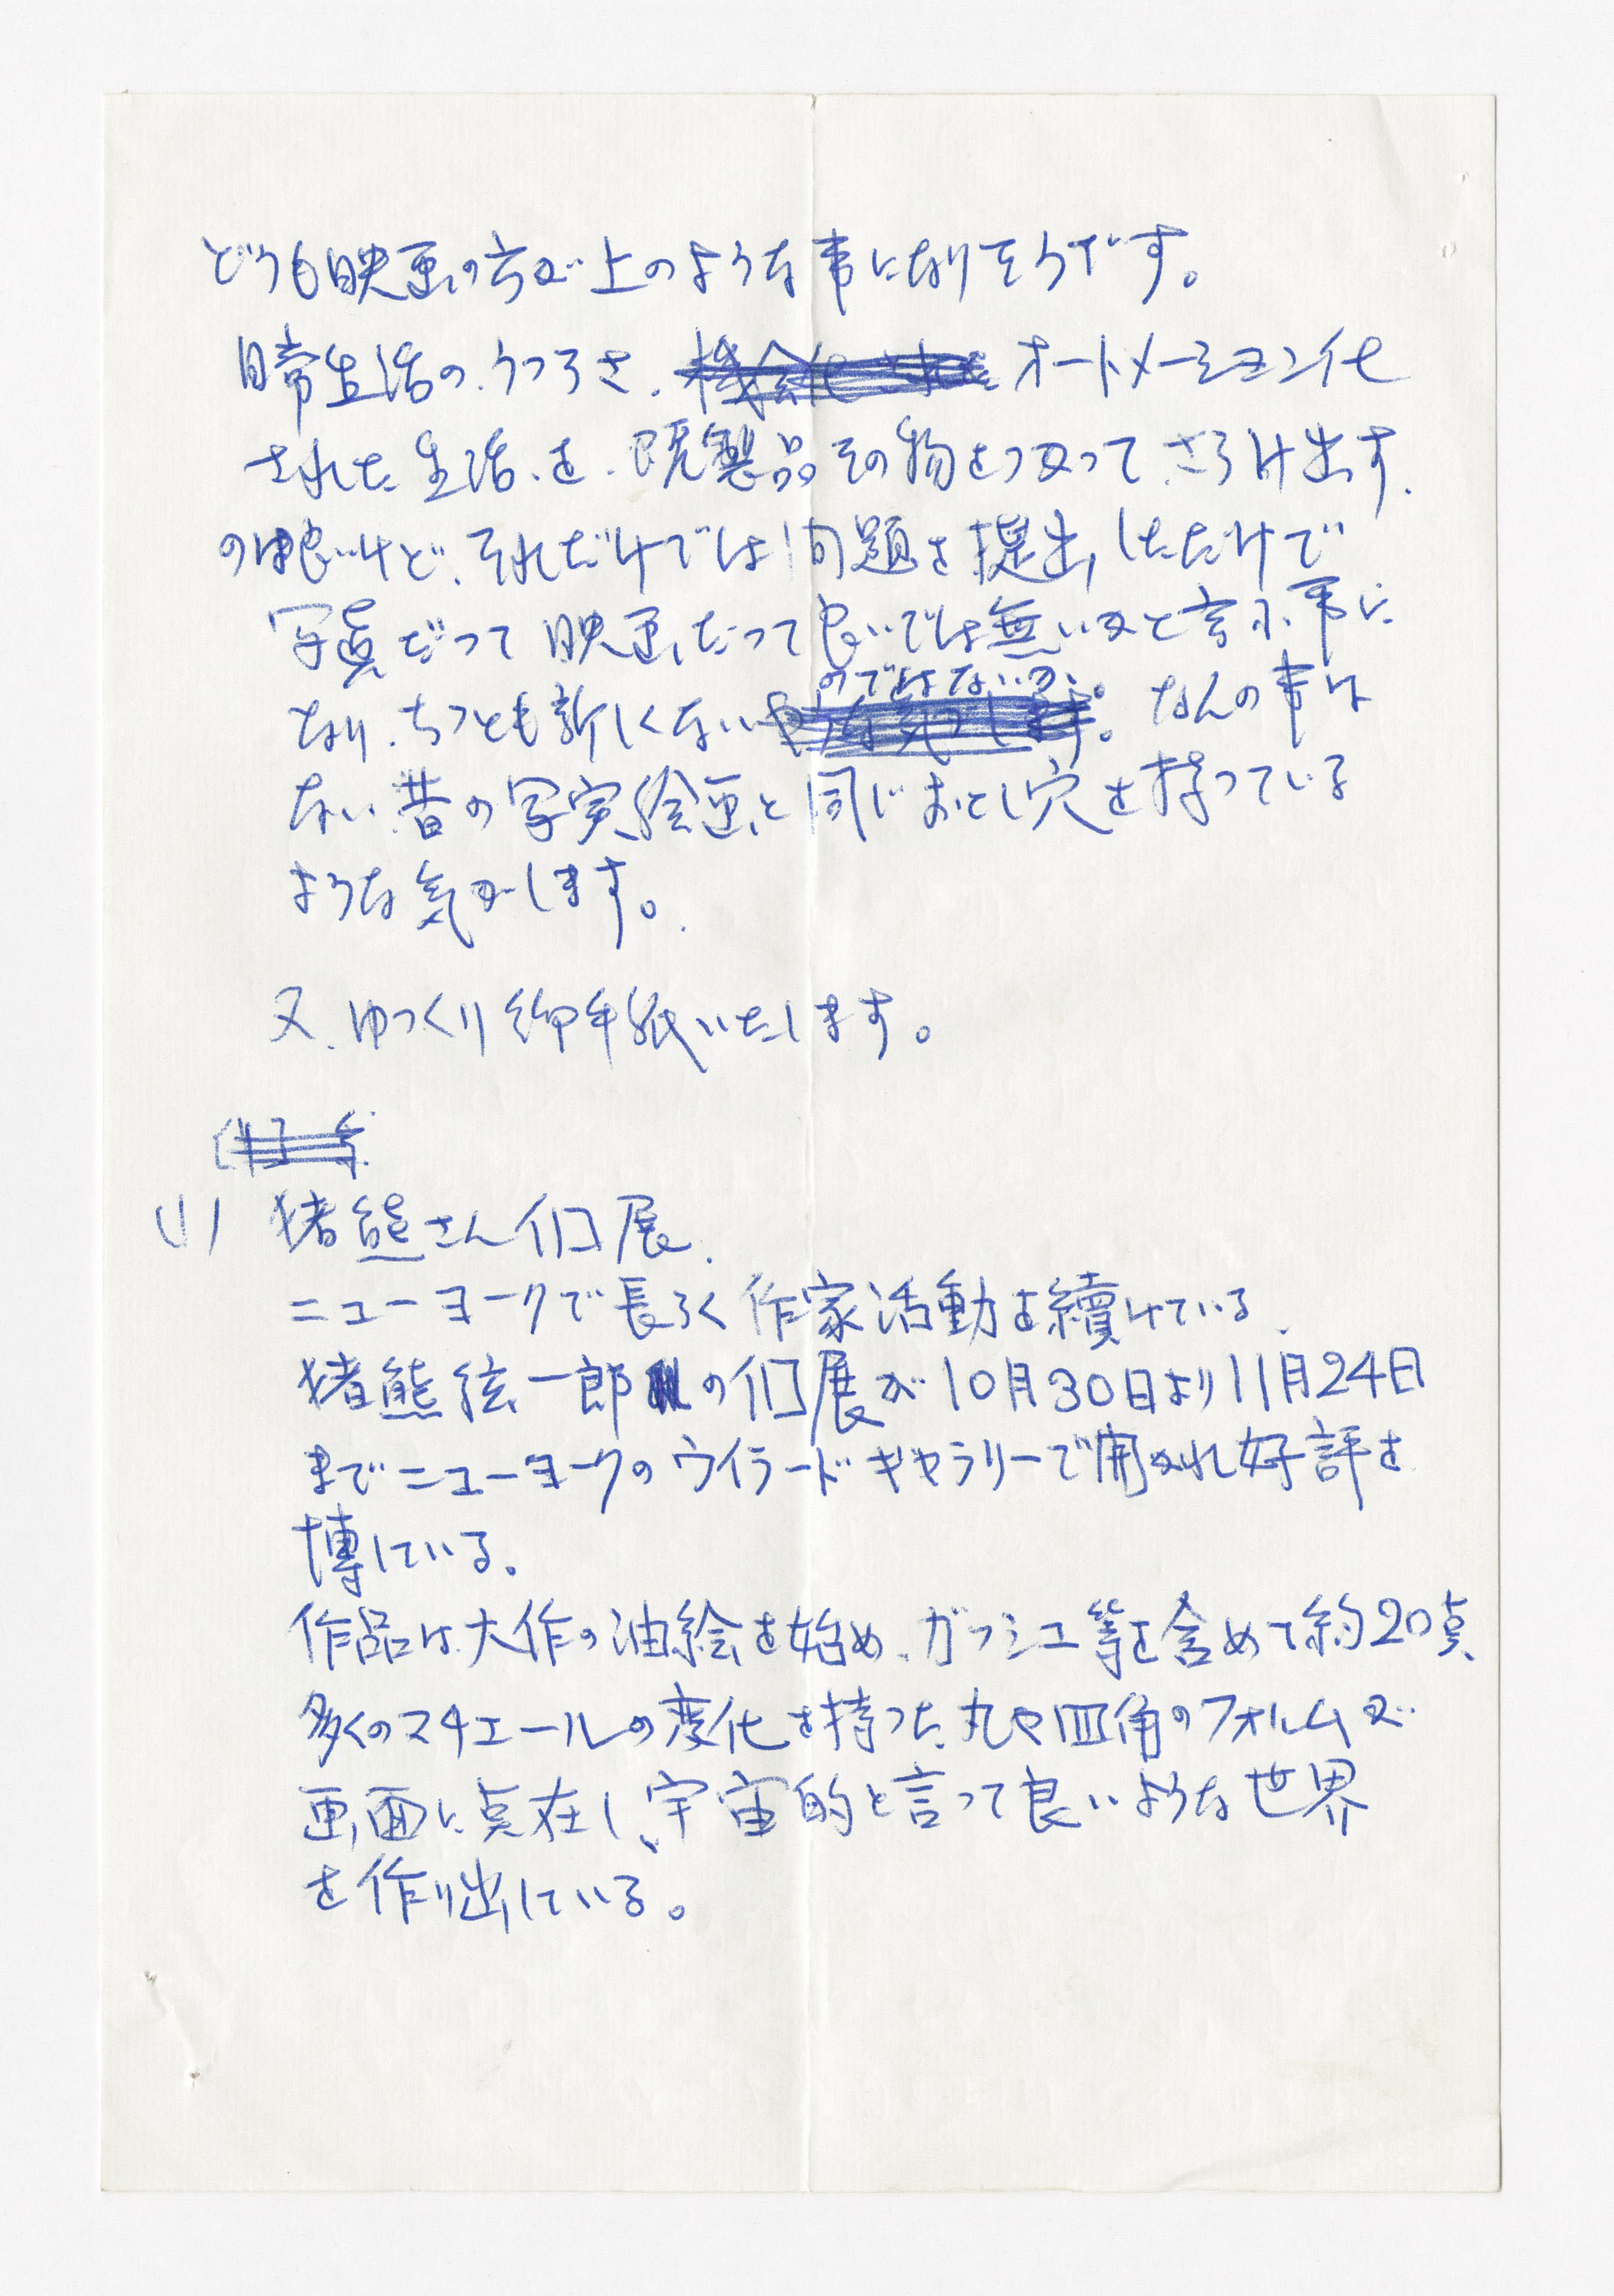 どうも映画の方が上のような事になりそうです。
日常生活の、うつろさ、オートメーション化
された生活、を、既製品その物をつかって、さらけ出す、
のは良いけど、それだけでは問題を提出しただけで
写真だって映画だって良いでは無いかと言ふ事に
なり、ちっとも新しくない
のではないか。なんの事は
ない、昔の写実絵画と同じおとし穴を持っている
ような気がします。
又、ゆっくり御手紙いたします。
(1) 猪熊さん個展、
ニューヨークで長らく作家活動を續けている、
猪熊弦一郎の個展が10月30日より11月24日
までニューヨークのウイラードギャラリーで開かれ好評を
博している。
作品は、大作の油絵を始め、ガッシュ等を含めて約20点、
多くのマチエールの変化を持った丸や四角のフォルムが
画面に点在し、宇宙的と言って良いような世界
を作り出している。